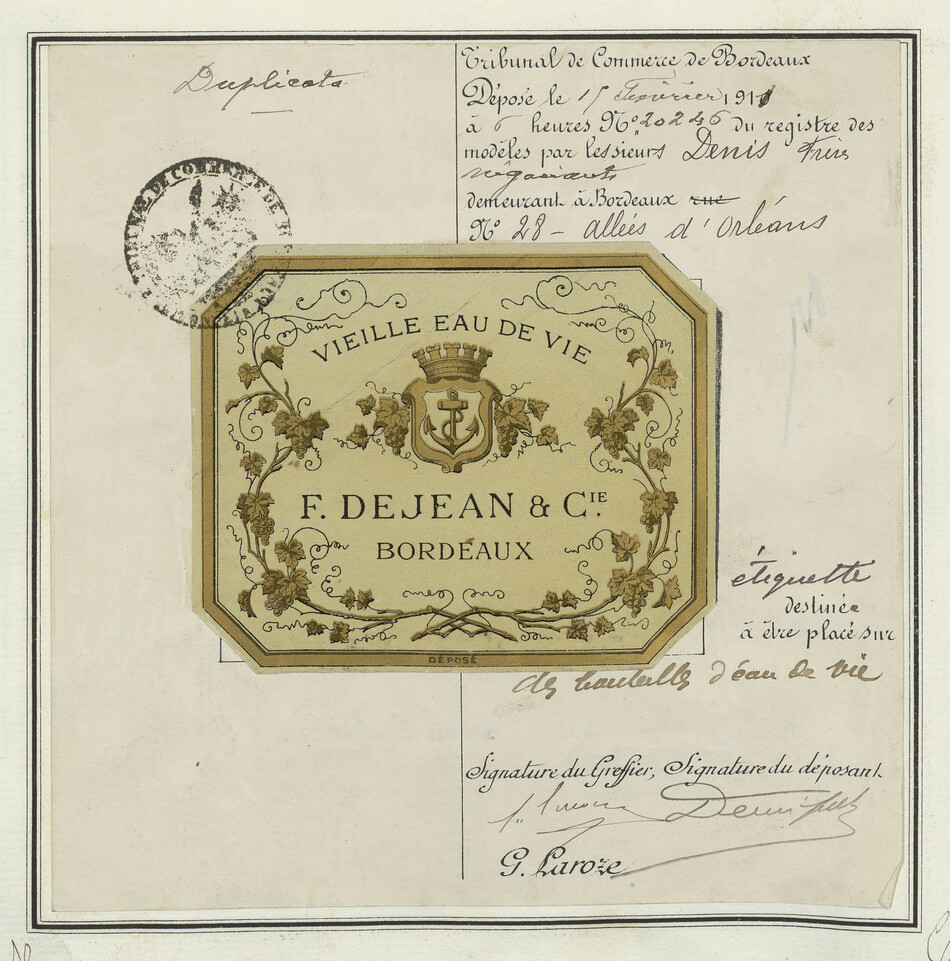 Duplicata
Tribunal de Commerce de Bordeaux
Déposé le 15 Février 1911
à 6 heures Nº 20246 du registre des
modèles par les sieurs Denis Frères
négociants
demeurant à Bordeaux rue
Nº 28 - allées d'Orléans
TRIBUNAL DE COMMERCE DE
VIEILLE EAU DE VIE
F. DEJEAN & CIE.
BORDEAUX
DÉPOSÉ
étiquette
destinée
à être placé sur
des bouteilles d'eau de vie
Signature du Greffier, Signature du déposant.
Denis
G. Laroze